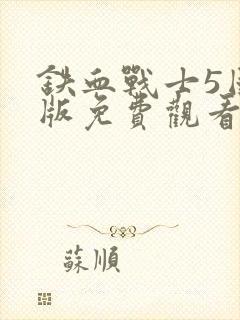 鉄血戰士5
版免費觀看
蘇順